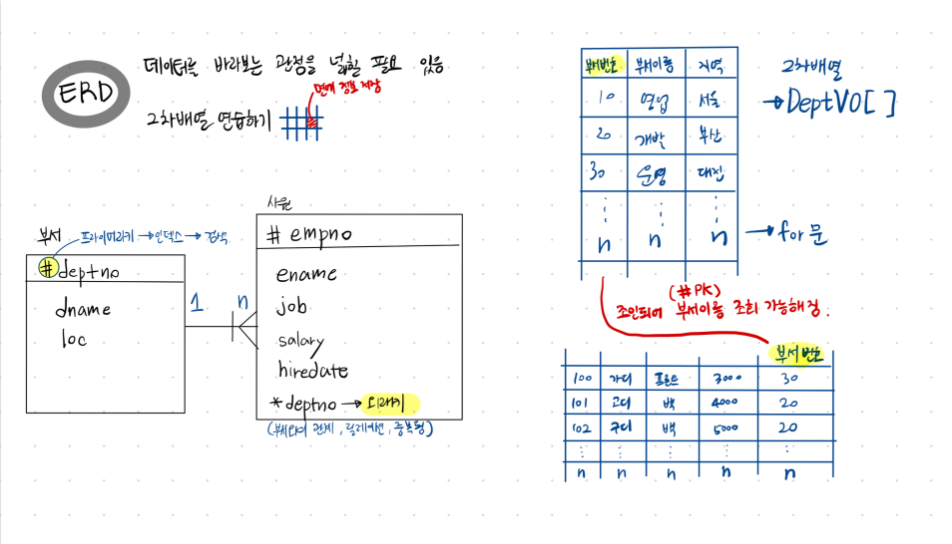 ERD
데이터를 바라보는 관점을 넓힐 필요 있음
면에 정보 저장
2차배열 연습하기
부서
프라이머리키 → 인덱스 → 검색
# deptno
dname
loc
1 n
사원
# empno
ename
job
salary
hiredate
* deptno → 외래키
(부서와의 관계, 릴레이션, 중복됨)
부서번호 부서이름 지역
10 영업 서울
20 개발 부산
30 운영 대전
n n n
2차배열
→ DeptVO[ ]
→ for문
(#PK)
조인되어 부서이름 조회 가능해짐.
부서번호
100 가디 프론트 3000 30
101 고디 백 4000 20
102 구디 백 5000 20
n n n n n